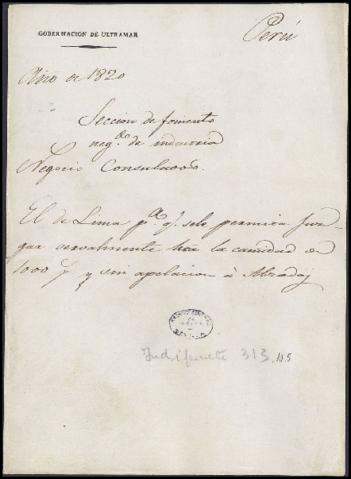 GOBERNACION DE ULTRAMAR
Perú
Año de 1820
Seccion de fomento
neg.do de industria
Negocio Consulados.
El de Lima p.a q.e se le permita juz-
gar verbalmente hta la cantidad de
1000 p.s y sin apelacion á Alzadas
Indiferente 313